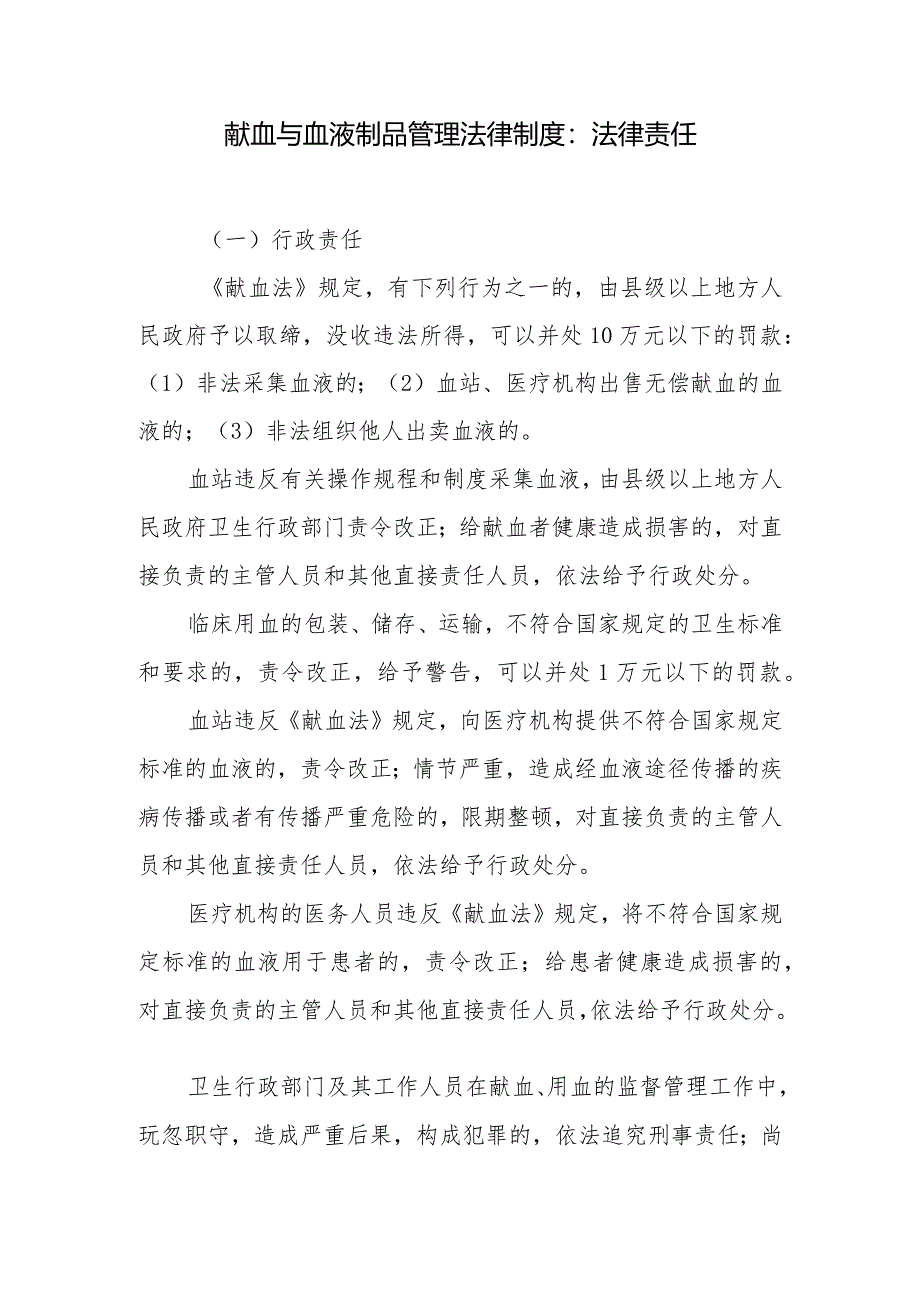 献血与血液制品管理法律制度：法律责任
（一）行政责任
《献血法》规定，有下列行为之一的，由县级以上地方人
民政府予以取缔，没收违法所得，可以并处 10 万元以下的罚款：
（1）非法采集血液的；（2）血站、医疗机构出售无偿献血的血
液的；（3）非法组织他人出卖血液的。
血站违反有关操作规程和制度采集血液，由县级以上地方人
民政府卫生行政部门责令改正；给献血者健康造成损害的，对直
接负责的主管人员和其他直接责任人员，依法给予行政处分。
临床用血的包装、储存、运输，不符合国家规定的卫生标准
和要求的，责令改正，给予警告，可以并处 1 万元以下的罚款。
血站违反《献血法》规定，向医疗机构提供不符合国家规定
标准的血液的，责令改正；情节严重，造成经血液途径传播的疾
病传播或者有传播严重危险的，限期整顿，对直接负责的主管人
员和其他直接责任人员，依法给予行政处分。
医疗机构的医务人员违反《献血法》规定，将不符合国家规
定标准的血液用于患者的，责令改正；给患者健康造成损害的，
对直接负责的主管人员和其他直接责任人员，依法给予行政处分。
卫生行政部门及其工作人员在献血、用血的监督管理工作中，
玩忽职守，造成严重后果，构成犯罪的，依法追究刑事责任；尚